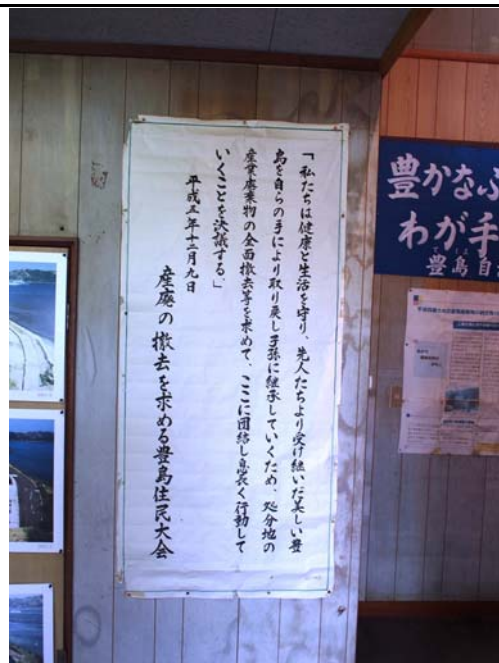 「私たちは健康と生活を守り、先人たちより受け継いだ美しい豊
島を自らの手により取り戻し子孫に継承していくため、処分地の
産業廃棄物の全面撤去等を求めて、ここに団結し息長く行動して
いくことを決議する。」
平成五年十二月九日
産廃の撤去を求める豊島住民大会
豊かなふ
わが手
豊島自